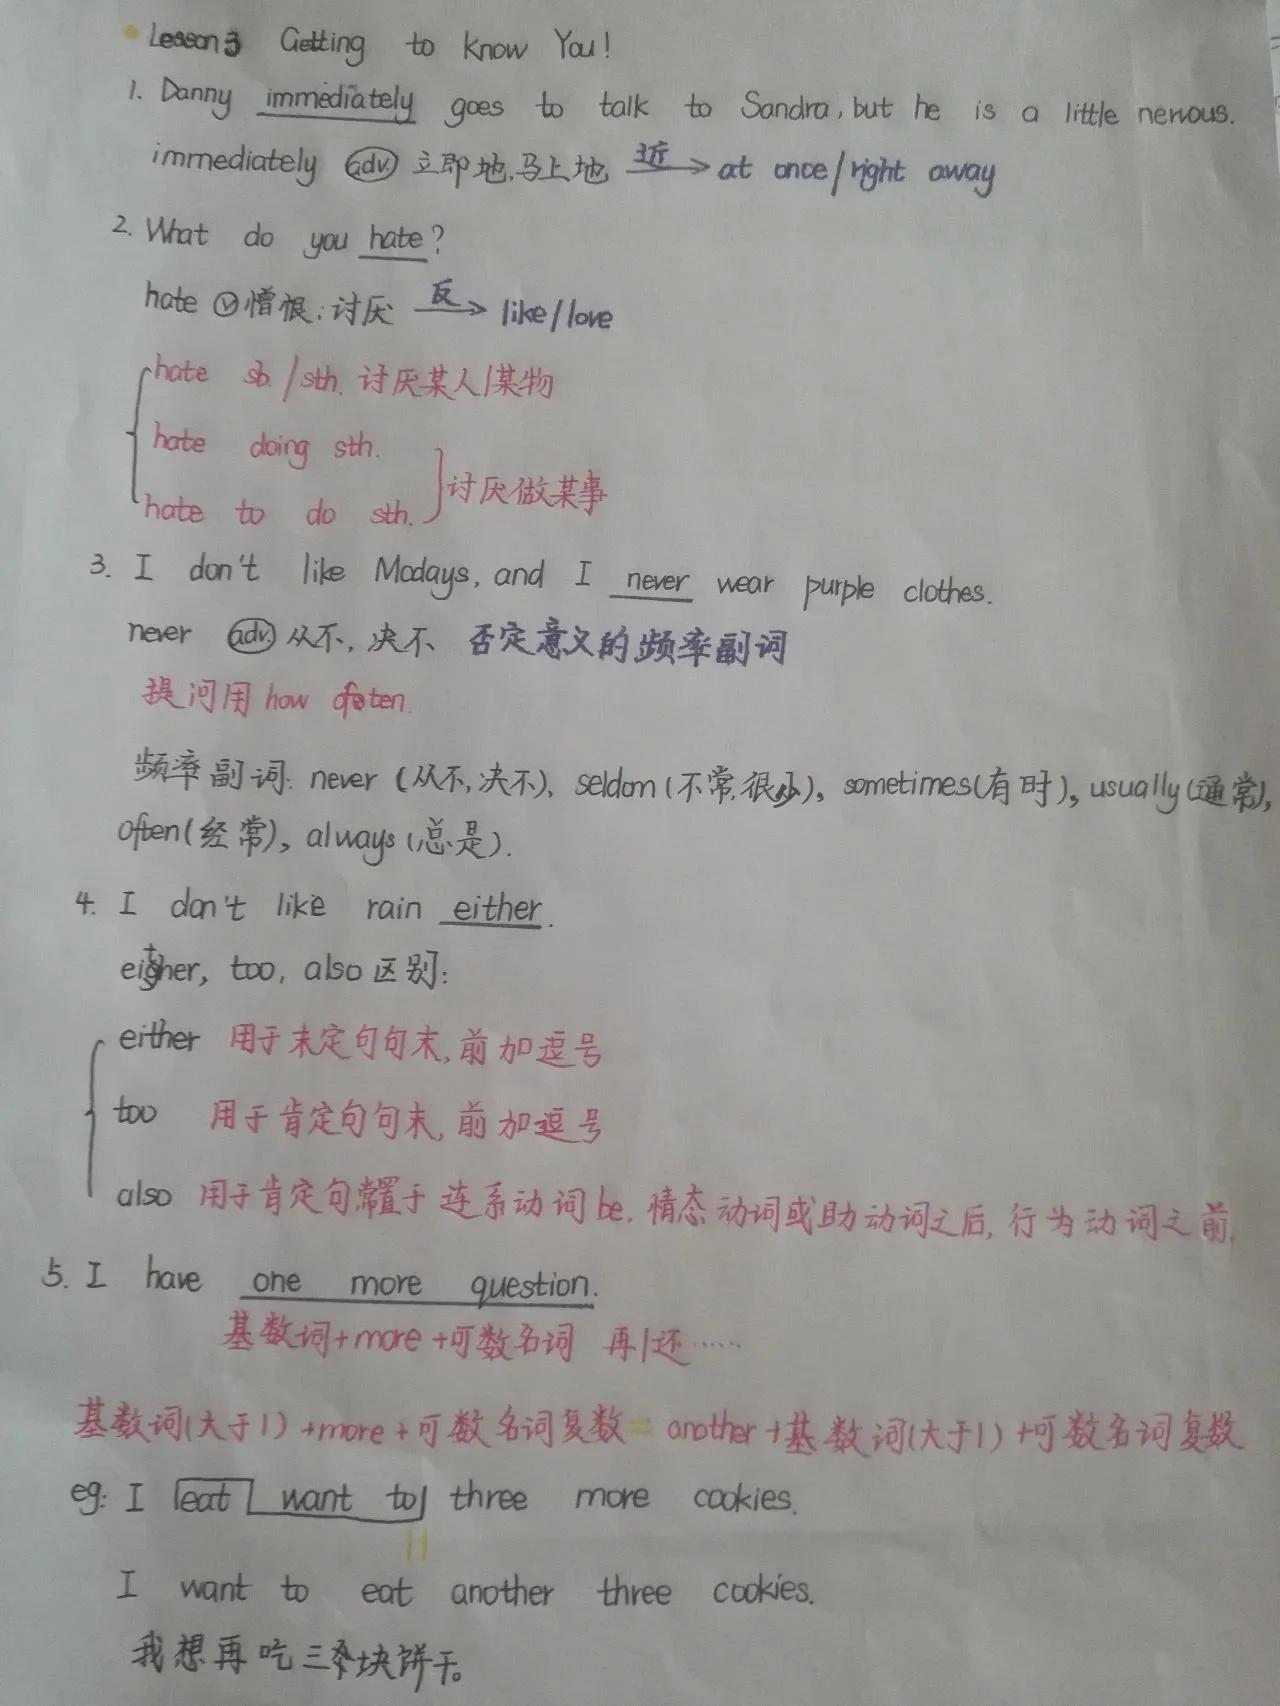 Lesson 3 Getting to know You!
1. Danny immediately goes to talk to Sandra, but he is a little nervous.
immediately adv. 立即地,马上地 近→ at once/right away
2. What do you hate?
hate v 憎恨;讨厌 反→ like/love
hate sb./sth. 讨厌某人/某物
hate doing sth.
讨厌做某事
hate to do sth.
3. I don't like Modays, and I never wear purple clothes.
never adv. 从不,决不 否定意义的频率副词
提问用 how often.
频率副词: never (从不,决不), seldom (不常,很少), sometimes(有时), usually(通常),
often(经常), always(总是).
4. I don't like rain either.
either, too, also 区别:
either 用于末定句句末,前加逗号
too 用于肯定句句末,前加逗号
also 用于肯定句,常置于连系动词be,情态动词或助动词之后,行为动词之前.
5. I have one more question.
基数词+more+可数名词 再/还……
基数词(大于1)+more+可数名词复数=another+基数词(大于1)+可数名词复数
eg: I eat want to three more cookies.
=
I want to eat another three cookies.
我想再吃三块饼干。